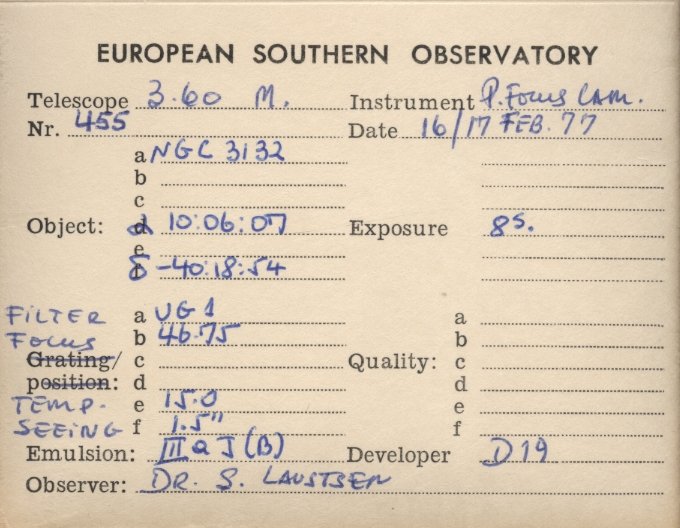 EUROPEAN SOUTHERN OBSERVATORY
Telescope 3.60 M. Instrument P. Focus CAM.
Nr. 455 Date 16/17 FEB. 77
a NGC 3132
b
c
Object: d α 10:06:07 Exposure 8s.
e
f δ -40:18:54
FILTER a UG1 a
Focus b 46.75 b
Grating/ c Quality: c
position: d d
TEMP. e 15.0 e
SEEING f 1.5" f
Emulsion: III a J (B) Developer D19
Observer: DR. S. LAUSTSEN